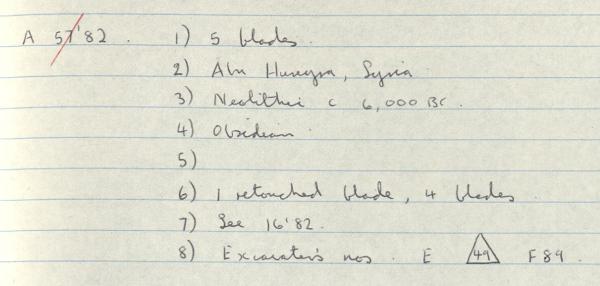 A 57'82. 1) 5 blades.
2) Abu Hureyra, Syria
3) Neolithic c 6,000 BC.
4) Obsidian.
5)
6) 1 retouched blade, 4 blades.
7) See 16'82.
8) Excavator's nos. E 49 F89.